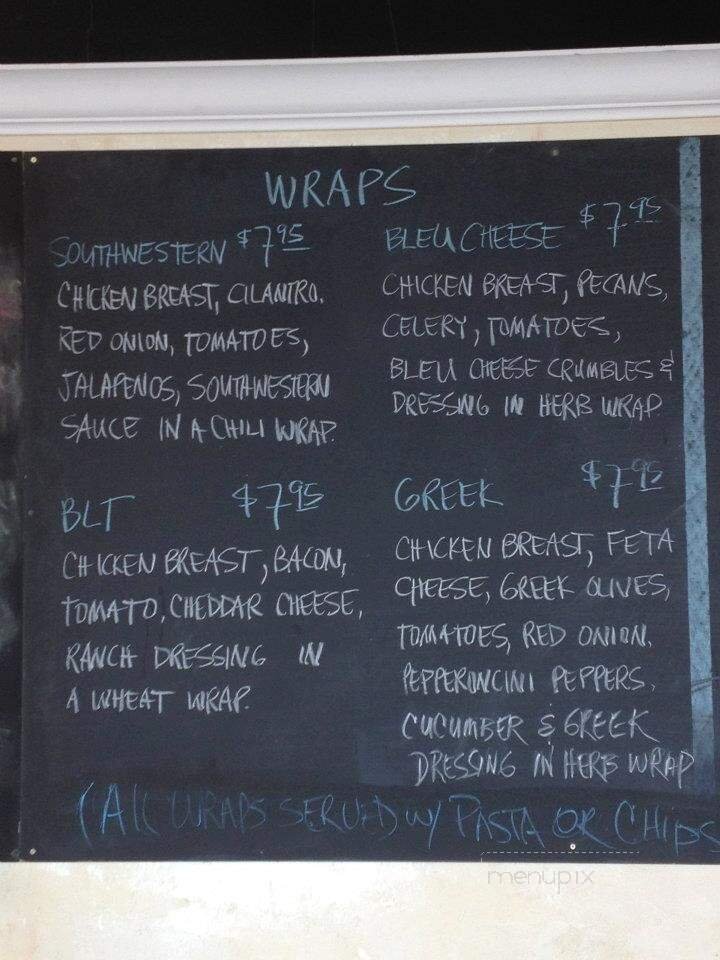 WRAPS
SOUTHWESTERN $7.95
CHICKEN BREAST, CILANTRO,
RED ONION, TOMATOES,
JALAPENOS, SOUTHWESTERN
SAUCE IN A CHILI WRAP.
BLEU CHEESE $7.95
CHICKEN BREAST, PECANS,
CELERY, TOMATOES,
BLEU CHEESE CRUMBLES &
DRESSING IN HERB WRAP
BLT $7.95
CHICKEN BREAST, BACON,
TOMATO, CHEDDAR CHEESE,
RANCH DRESSING IN
A WHEAT WRAP.
GREEK $7.95
CHICKEN BREAST, FETA
CHEESE, GREEK OLIVES,
TOMATOES, RED ONION,
PEPPERONCINI PEPPERS,
CUCUMBER & GREEK
DRESSING IN HERB WRAP
(All WRAPS SERVED w/ PASTA OR CHIPS
menupix